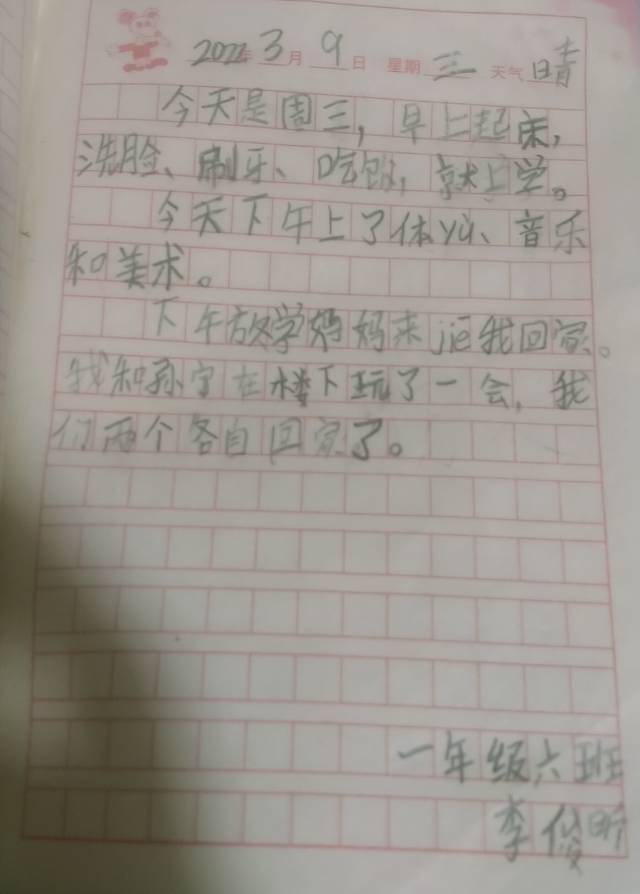 2022年3月9日 星期三 天气晴
今天是周三，早上起床，
洗脸、刷牙、吃饭，就上学。
今天下午上了体yù、音乐
和美术。
下午放学妈妈来jiē我回家。
我和孙宁在楼下玩了一会，我
们两个各自回家了。
一年级六班
李俊昕